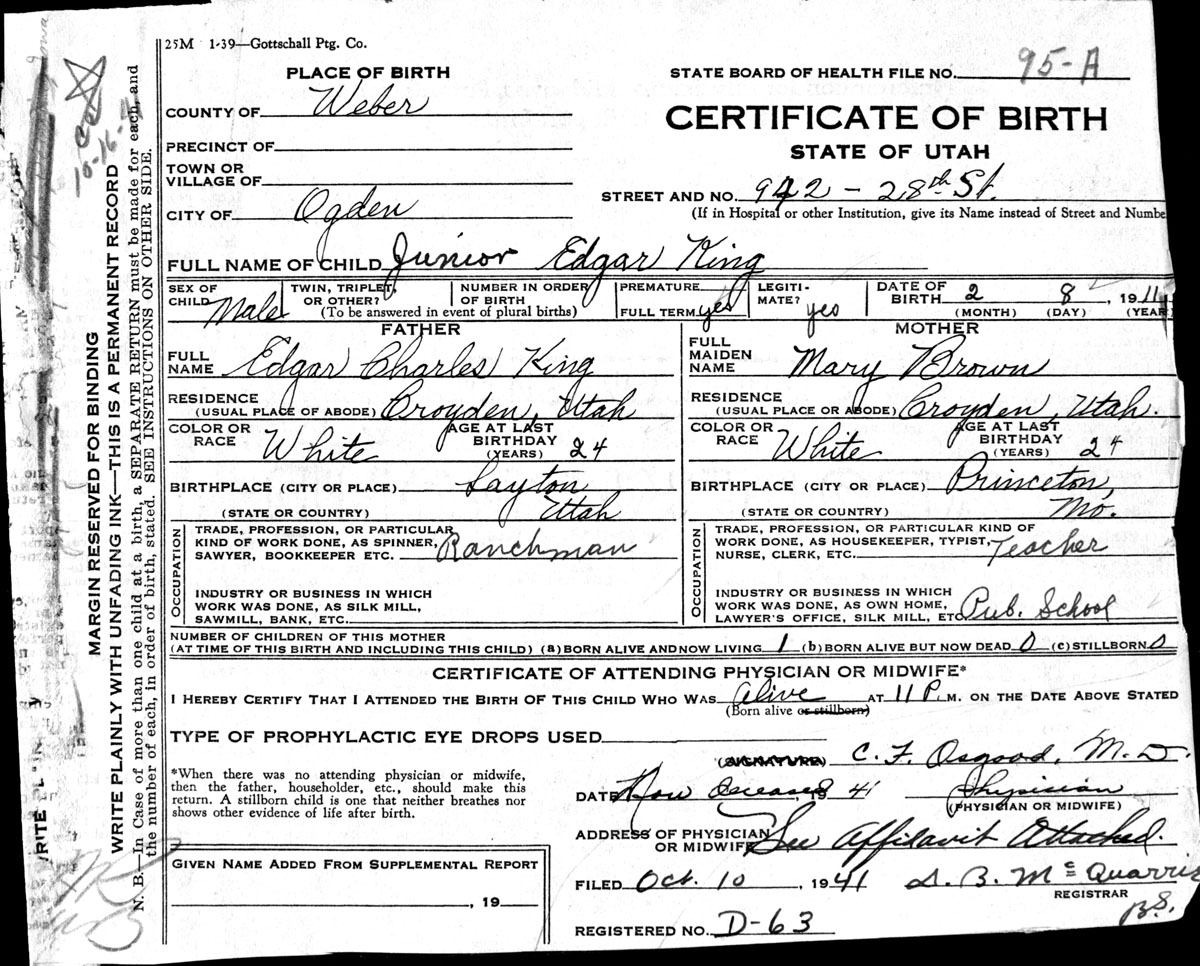 25M 1-39—Gottschall Ptg. Co.
PLACE OF BIRTH
STATE BOARD OF HEALTH FILE NO. 95-A
COUNTY OF Weber
CERTIFICATE OF BIRTH
PRECINCT OF
STATE OF UTAH
TOWN OR
VILLAGE OF
STREET AND NO. 942 - 28th St.
CITY OF Ogden
(If in Hospital or other Institution, give its Name instead of Street and Numbe
FULL NAME OF CHILD Junior Edgar King
SEX OF CHILD Male
TWIN, TRIPLET, OR OTHER?
NUMBER IN ORDER OF BIRTH
(To be answered in event of plural births)
PREMATURE
FULL TERM yes
LEGITI-MATE? yes
DATE OF BIRTH 2 8, 1911
(MONTH) (DAY) (YEAR
FATHER
FULL NAME Edgar Charles King
RESIDENCE
(USUAL PLACE OF ABODE) Croyden, Utah
COLOR OR RACE White
AGE AT LAST BIRTHDAY (YEARS) 24
BIRTHPLACE (CITY OR PLACE) Layton
(STATE OR COUNTRY) Utah
OCCUPATION
TRADE, PROFESSION, OR PARTICULAR
KIND OF WORK DONE, AS SPINNER,
SAWYER, BOOKKEEPER ETC. Ranchman
INDUSTRY OR BUSINESS IN WHICH
WORK WAS DONE, AS SILK MILL,
SAWMILL, BANK, ETC.
MOTHER
FULL MAIDEN NAME Mary Brown
RESIDENCE
(USUAL PLACE OR ABODE) Croyden, Utah.
COLOR OR RACE White
AGE AT LAST BIRTHDAY (YEARS) 24
BIRTHPLACE (CITY OR PLACE) Princeton,
(STATE OR COUNTRY) Mo.
OCCUPATION
TRADE, PROFESSION, OR PARTICULAR KIND OF
WORK DONE, AS HOUSEKEEPER, TYPIST,
NURSE, CLERK, ETC. Teacher
INDUSTRY OR BUSINESS IN WHICH
WORK WAS DONE, AS OWN HOME,
LAWYER'S OFFICE, SILK MILL, ETC Pub. School
NUMBER OF CHILDREN OF THIS MOTHER
(AT TIME OF THIS BIRTH AND INCLUDING THIS CHILD) (a) BORN ALIVE AND NOW LIVING 1 (b) BORN ALIVE BUT NOW DEAD 0 (c) STILLBORN 0
CERTIFICATE OF ATTENDING PHYSICIAN OR MIDWIFE*
I HEREBY CERTIFY THAT I ATTENDED THE BIRTH OF THIS CHILD WHO WAS Alive AT 11 P. M. ON THE DATE ABOVE STATED
(Born alive or stillborn)
TYPE OF PROPHYLACTIC EYE DROPS USED
*When there was no attending physician or midwife,
then the father, householder, etc., should make this
return. A stillborn child is one that neither breathes nor
shows other evidence of life after birth.
(SIGNATURE) C. F. Osgood, M. D.
DATE Now Deceased, 19 41 Physician
(PHYSICIAN OR MIDWIFE)
ADDRESS OF PHYSICIAN
OR MIDWIFE See Affidavit Attached.
GIVEN NAME ADDED FROM SUPPLEMENTAL REPORT
, 19
FILED Oct. 10, 1941 D. B. McQuarrie
REGISTRAR
B.S.
REGISTERED NO. D-63
MARGIN RESERVED FOR BINDING
WRITE PLAINLY WITH UNFADING INK—THIS IS A PERMANENT RECORD
N. B.—In Case of more than one child at a birth, a SEPARATE RETURN must be made for each, and
the number of each, in order of birth, stated. SEE INSTRUCTIONS ON OTHER SIDE.